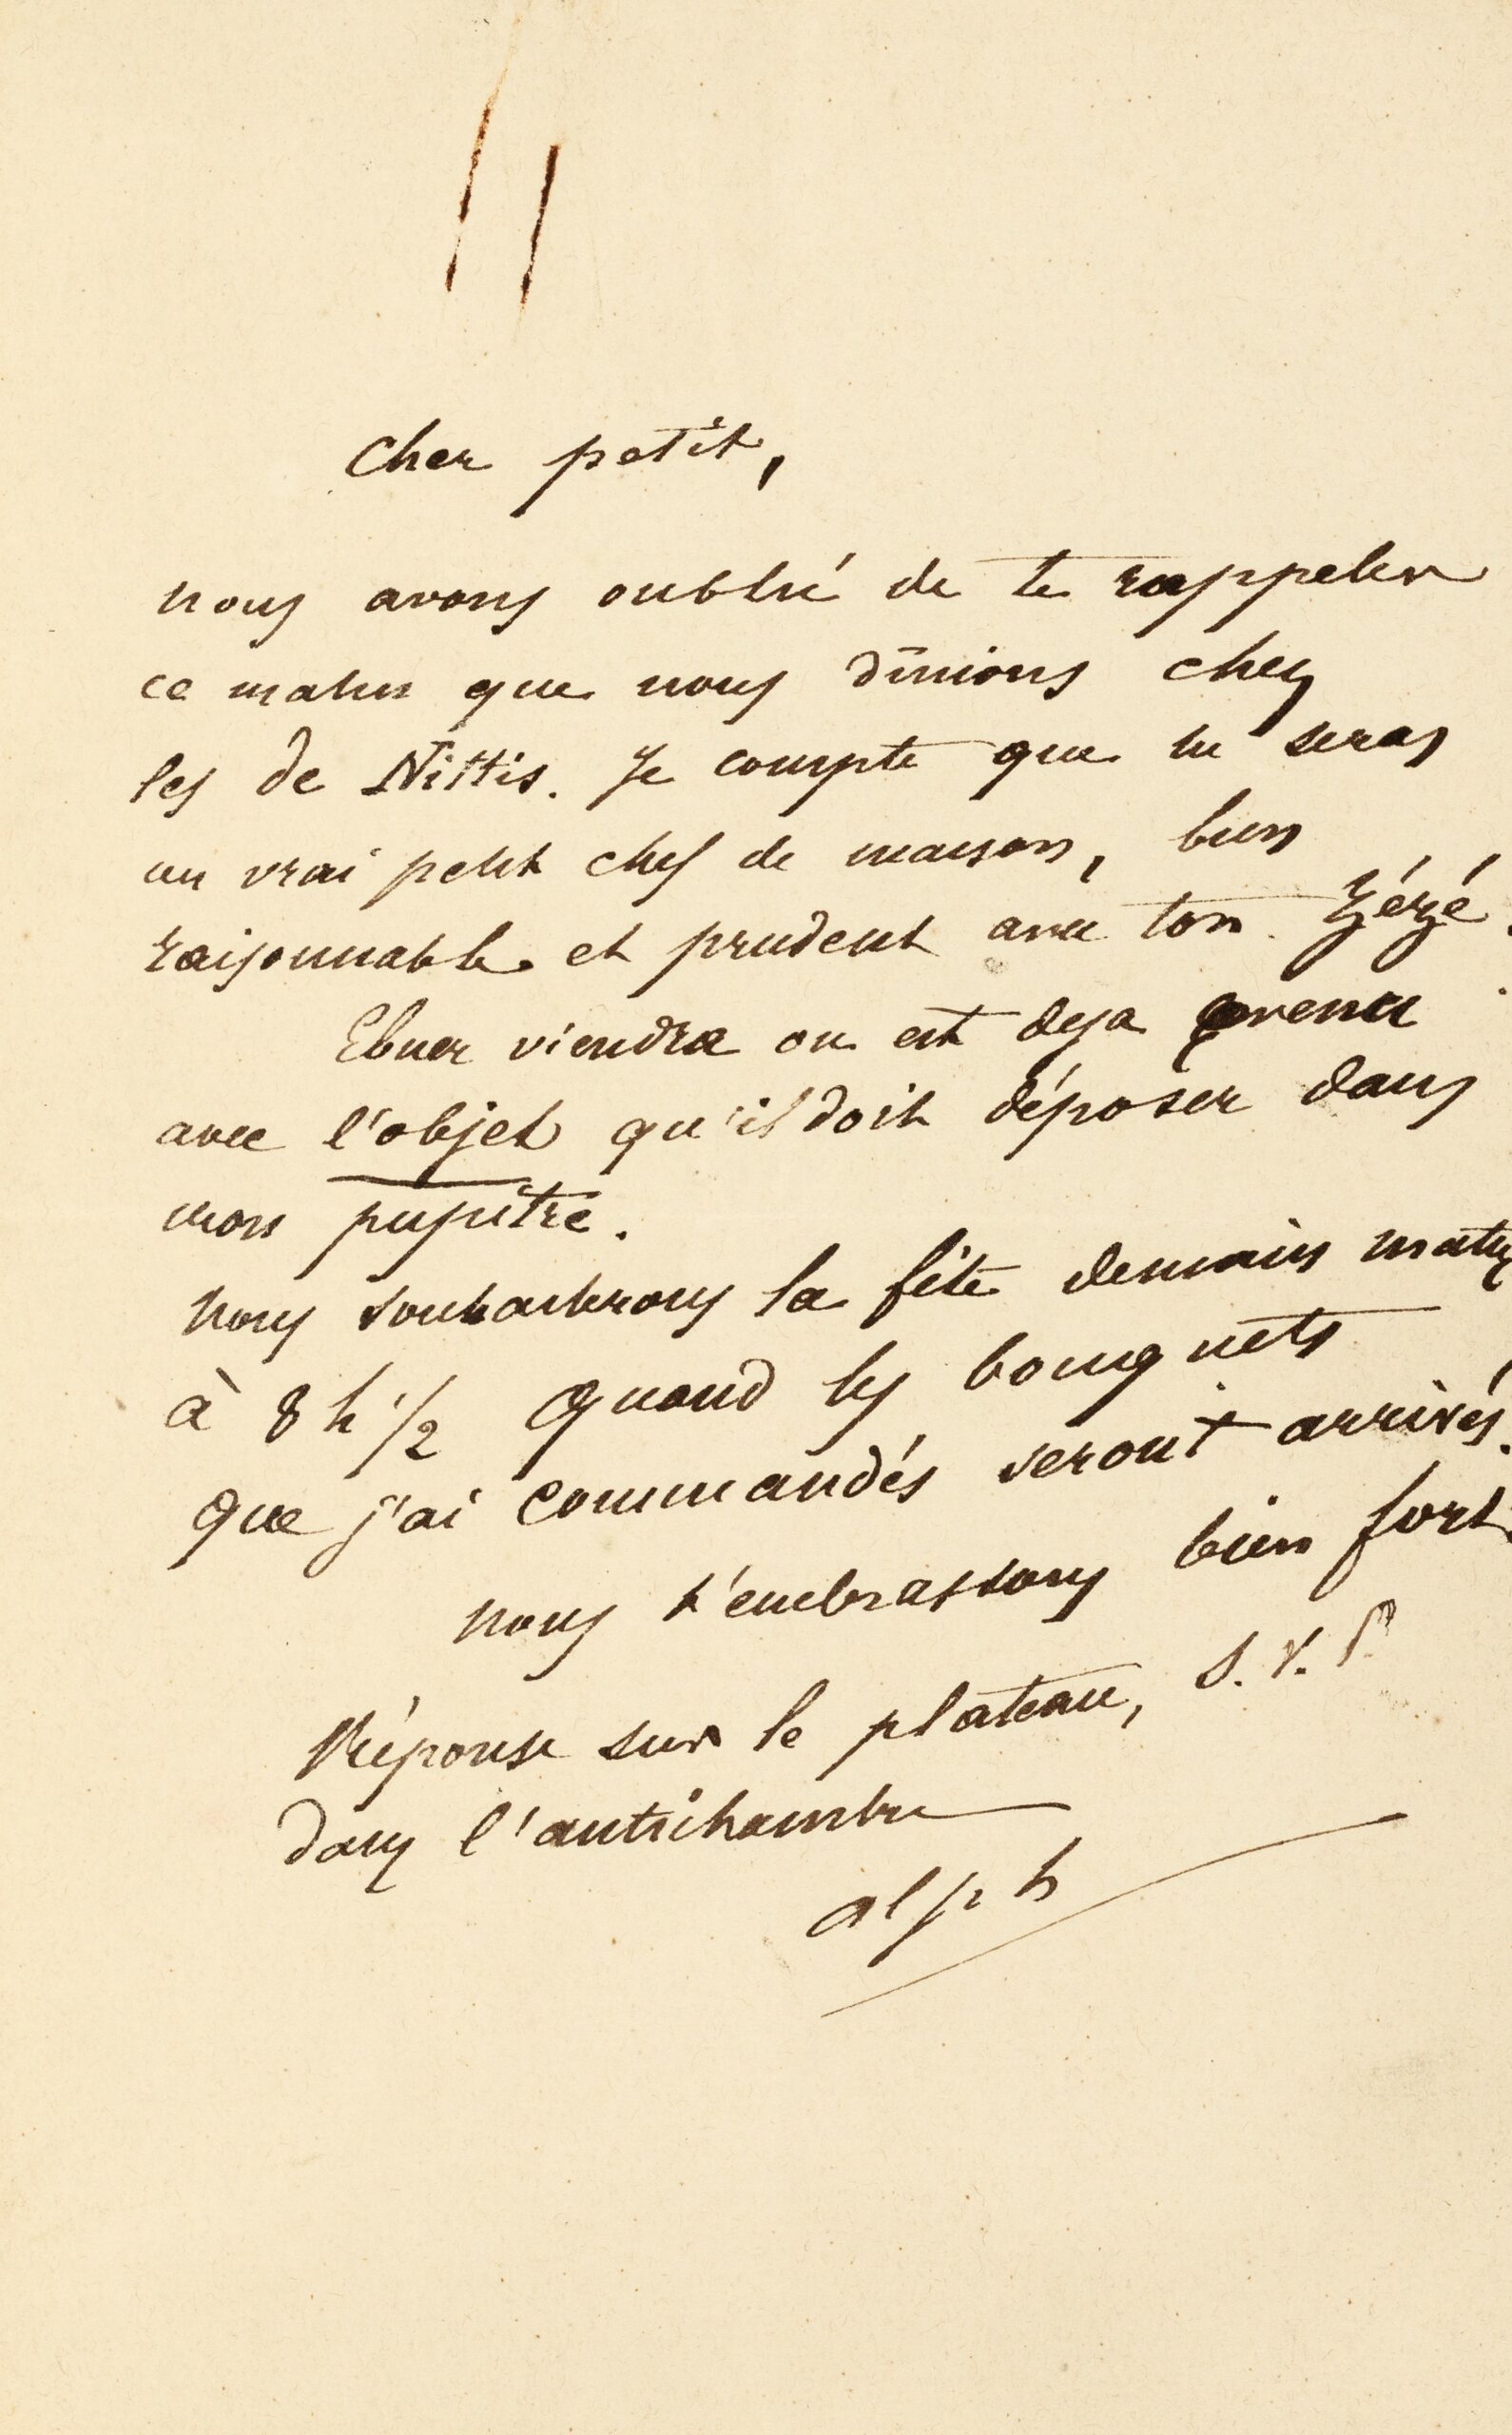 Cher petit,
nous avons oublié de te rappeler
ce matin que nous dînions chez
les de Nittis. Je compte que tu seras
un vrai petit chef de maison, bien
raisonnable et prudent avec ton Zézé.
Ebner viendra ou est deja venu
avec l'objet qu'il doit déposer dans
mon pupitre.
nous souhaiterons la fête demain matin
à 8 h 1/2 quand les bouquets
que j'ai commandés seront arrivés.
nous t'embrassons bien fort.
Réponse sur le plateau, S.V.P.
dans l'antichambre
alph